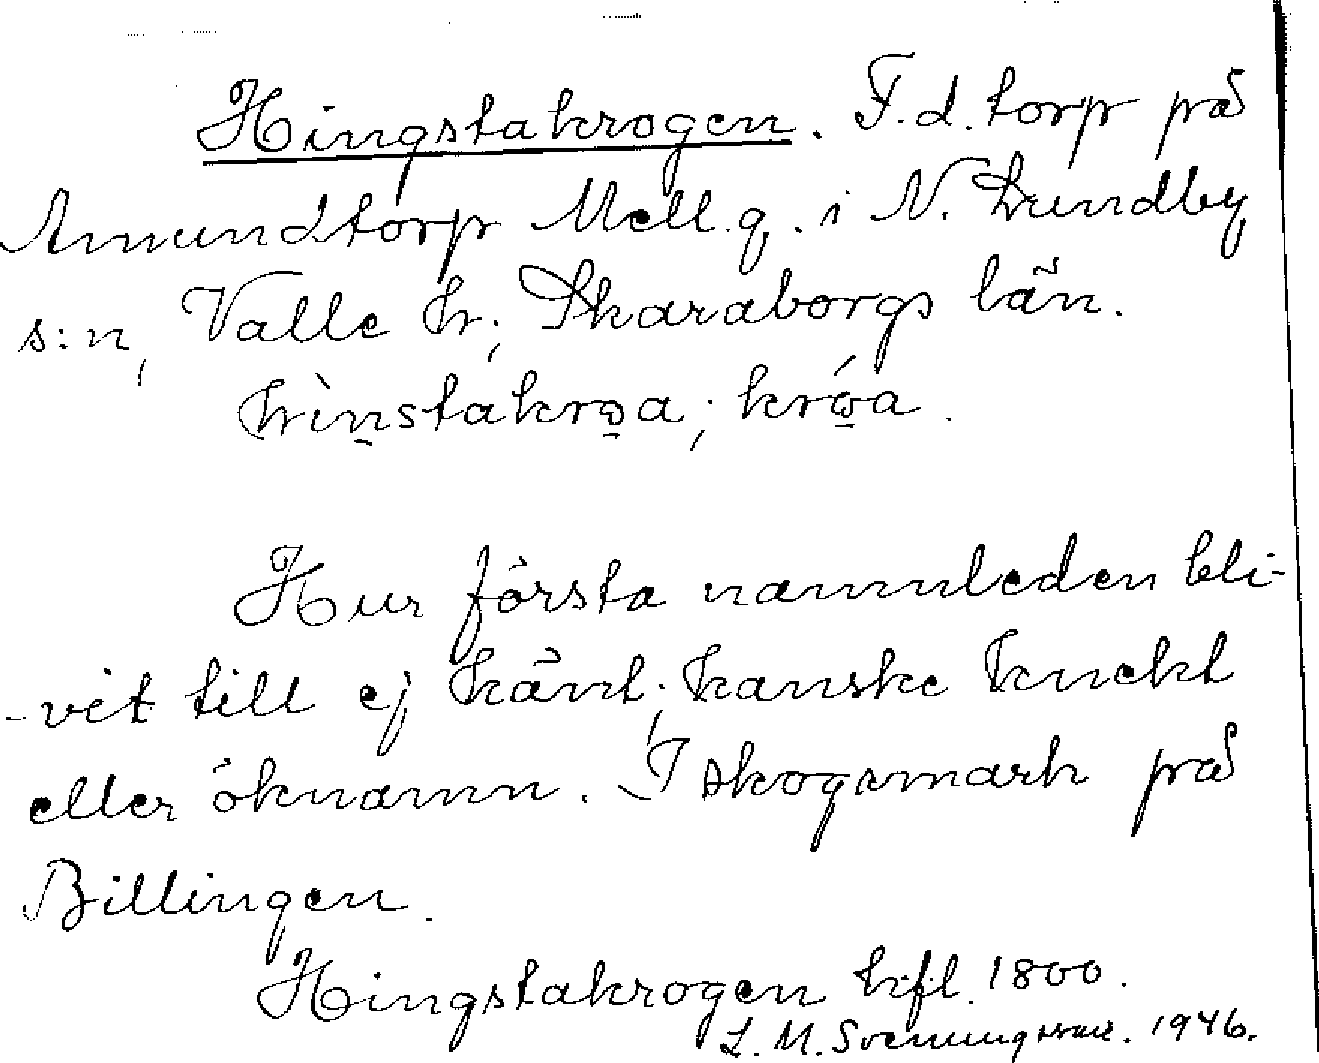 Hingstakrogen. F.d. torp på
Amundtorp Mell.g. i N. Lundby
s:n, Valle hr; Skaraborgs län.
hìn̲stakrꝍa; króa.
Hur första namnleden bli-
-vit till ej känt; kanske knekt
eller öknamn. I skogsmark på
Billingen.
Hingstakrogen hfl. 1800.
L. M. Svenungsson. 1946.